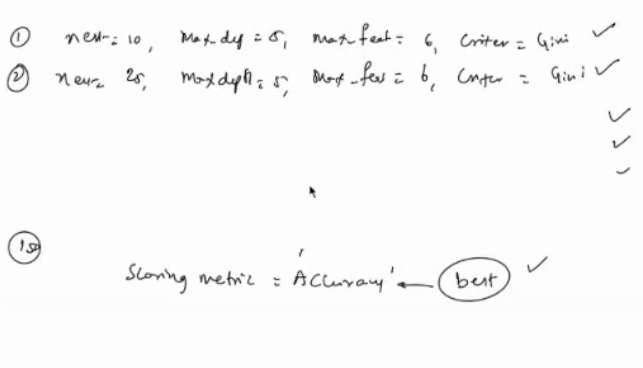 ① nest = 10, Max dep = 5, max feat = 6, Criter = Gini ✓
② nest = 25, Maxdepth = 5, Max_fea = 6, Criter = Gini ✓
✓
✓
✓
150
Scoring metric = 'Accuracy' ← best ✓